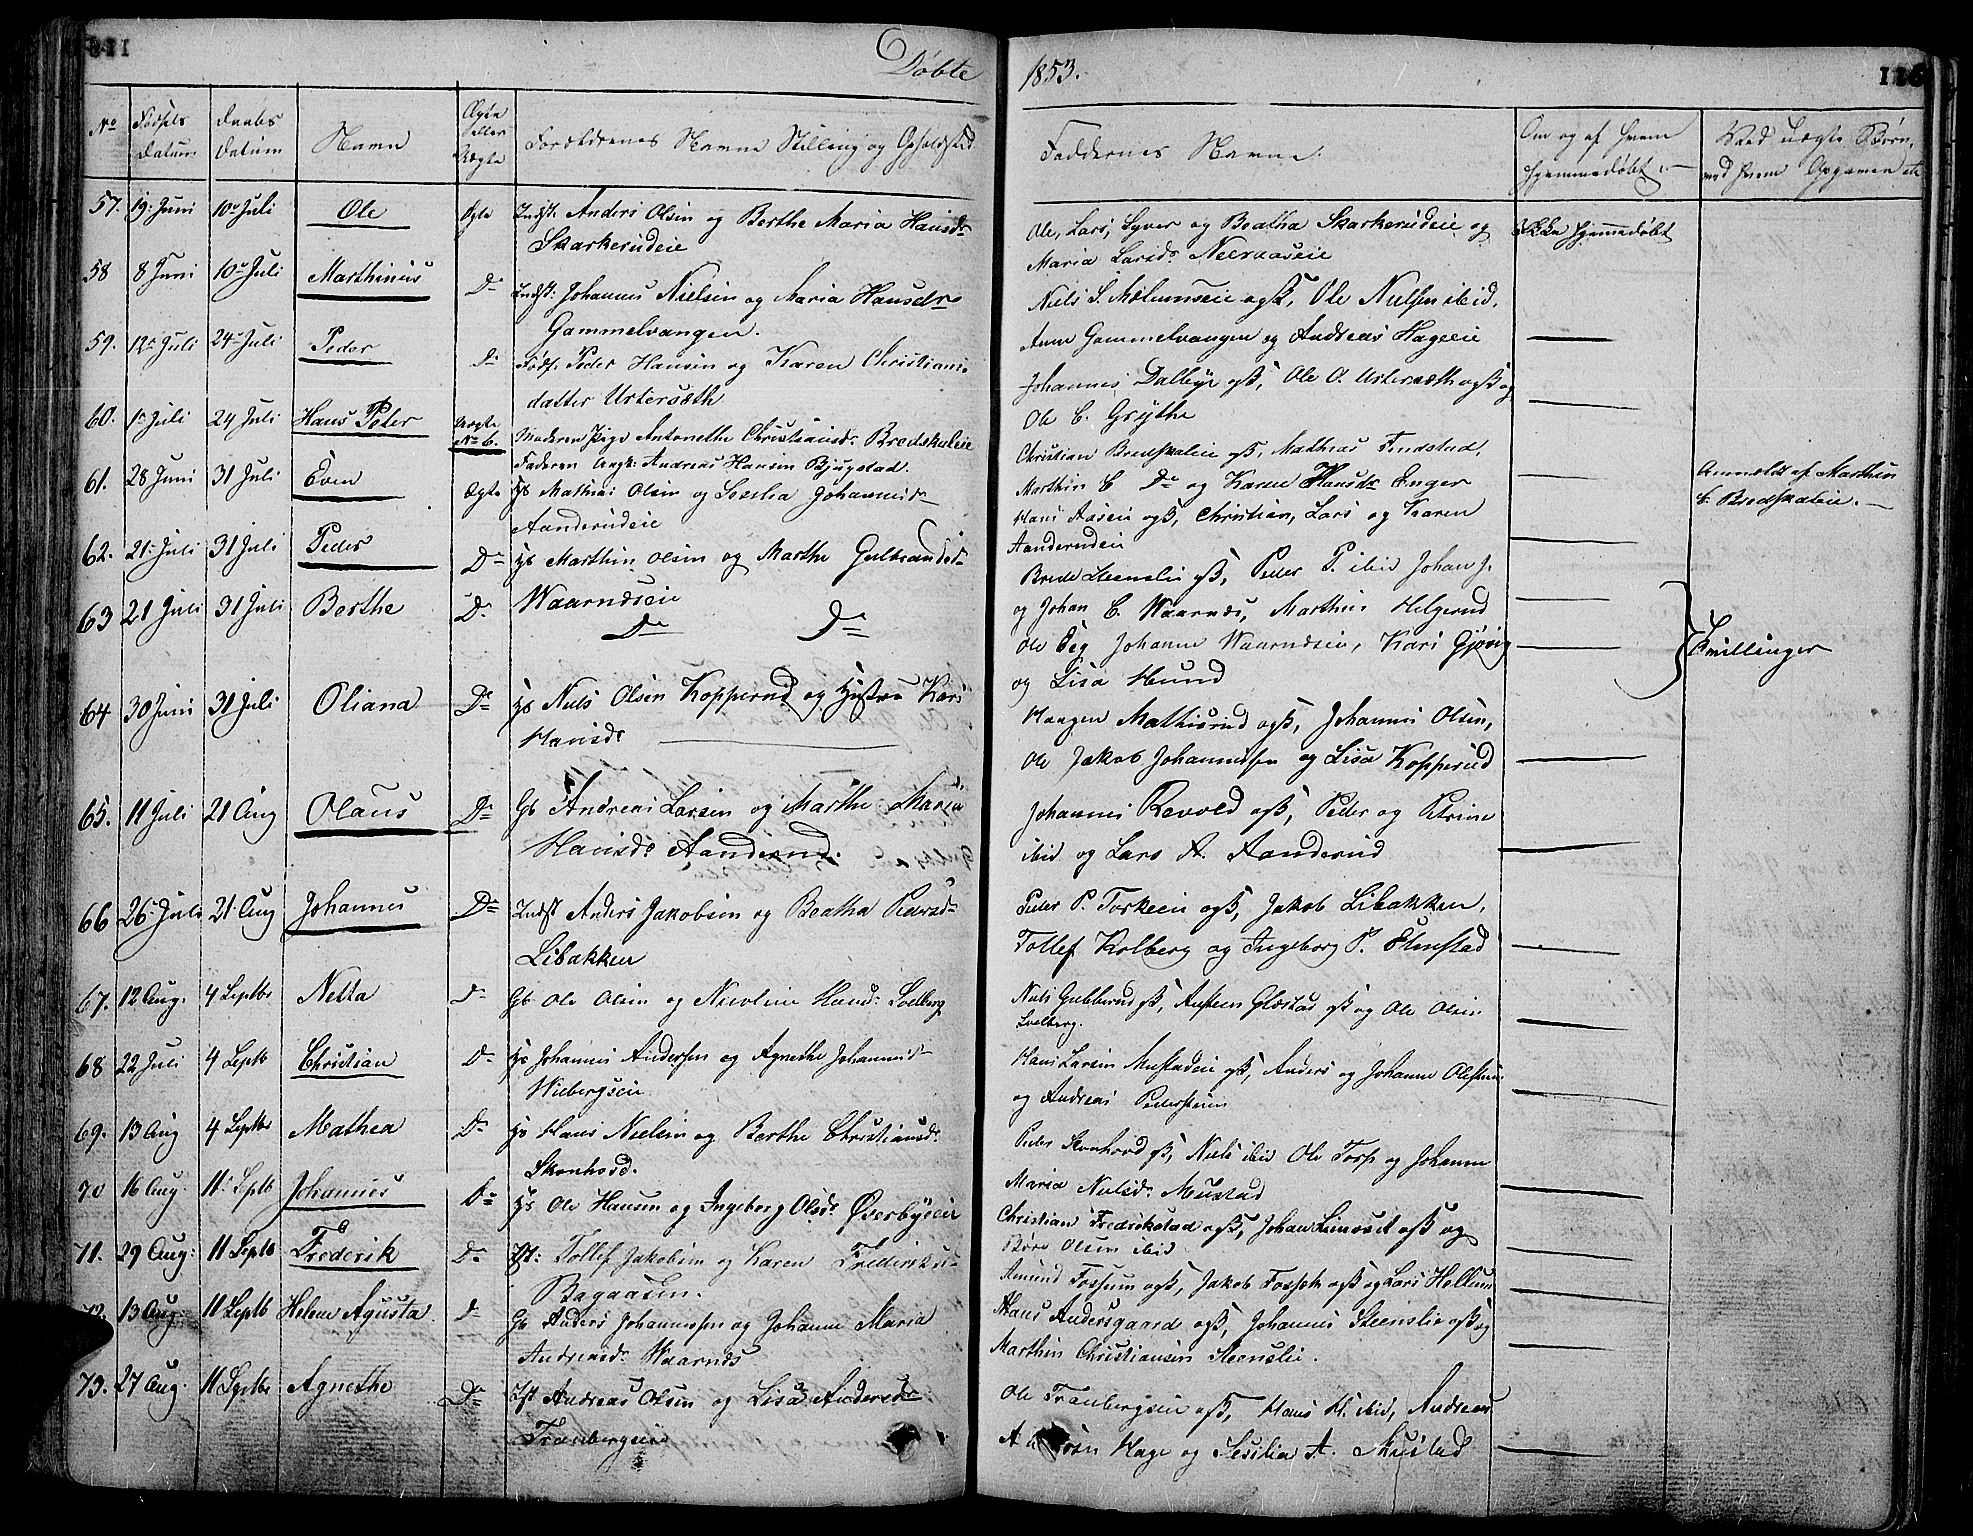 Døbte
1853.
126
No
Fødsels Datum
Daabs Datum
Navn
Ægte eller Uægte
Forældrenes Navne Stilling og Opholdsted
Faddernes Navne.
Om og af hvem hjemmedøbt
Ved uægte Børn, med hvem Avgaven etc
57. 19. Juni 10 Juli Ole Ægte Indst: Anders Olsen og Berthe Maria Hansdr
Skarkerudeie
Ole, Lars, Syver og Beatha Skarkerudeie og
Maria Larsdr
Ikke hjemmedøbt
58 8 Juni 10 Juli Marthinus Do Indst: Johannes Nielsen og Maria Hansdr
Gammelvangen.
Niels S. Mælumseie ogß, Ole Nielsen ibid,
Anne Gammelvangen og Andreas Hageeie
59. 12 Juli 24 Juli Peder Do Peder Hansen og Karen Christians
datter Ustersæth
Johannes Dalbye gß, Ole O. Ustersæth ogß og
Ole C. Grythe
60. 1 Juli 24 Juli Hans Peter Uægte No 6. Moderen Pige Antonethe Christiansdr Bredskaleie
Faderen Ungk: Andreas Hansen Bjugstad.
Christian Bredskaleie gß, Mathias Findstad,
Marthin C Do og Karen Hansdr Enger
Anmeldt af Marthin
C. Bredskaleie.
61. 28 Juni 31 Juli Even Ægte Hs Mathias Olsen og Sesilia Johannesdr
Aanderudeie
Hans Aaseie ogß, Christian, Lars og Karen
Aanderudeie
62. 21. Juli 31 Juli Peder Do Hs Marthin Olsen og Marthe Gulbrandsdr
Waarnæseie
Brede Steenslie gß, Peder P. ibid Johan J.
og Johan C. Waarnæs, Marthin Helgerud
63 21 Juli 31 Juli Berthe Do
Do Do
Ole Eeg Johanne Waarnæseie, Kari Gjøvig
og Lisa Hund
Tvillinger
64 30 Juni 31 Juli Oliana Do Hs Niels Olsen Kopperud og Hustru Kari
Hansdr
Haagen Mathisrud ogß, Johannes Olsen,
Ole Jakob Johannessen og Lisa Kopperud
65. 11 Juli 21 Aug Olaus Do Gb Andreas Larsen og Marthe Maria
Hansdr Aanderud.
Johannes Revold ogß, Peder og Petrine
ibid og Lars A. Aanderud
66 26 Juli 21 Aug Johannes Do Indst Anders Jakobsen og Beatha Pedersdr
Libakken
Peder P. Torkeeie ogß, Jakob Libakken,
Tollef Kolberg og Ingeborg P. Elmstad
67. 12 Aug. 4 Septbr Netta Do Gb Ole Olsen og Nicoline Hansdr Soelberg
Niels Gubberud gß, Austeen Glæstad gß og Ole Olsen
Soelberg.
68 22 Juli 4 Septb Christian Do Hs Johannes Andersen og Agnethe Johannesdr
Wiebergseie
Hans Larsen Mustadeie gß, Anders og Johanne
og Andreas
69. 13 Aug 4 Septbr Mathea Do Hs Hans Nielsen og Berthe Christiansdr
Skonhovd.
Peder Skonhovd gß, Niels ibid Ole Torp og Johanne
Maria Nielsdr Mustad
70 16 Aug. 11 Septb Johannes Do Hs Ole Hansen og Ingeborg Olsdr Øverbyeeie
Christian Fredrikstad ogß, Johan ogß og
Olsen ibid
71. 29 Aug: 11 Septb Frederik Do Tollef Jakobsen og Karen Frederiks
Bagaasen.
Amund Fossum ogß, Jakob ogß og Lars Hellum
72. 13 Aug. 11 Septb Helene Agusta Do Gb Anders Johannessen og Johanne Maria
Andreasdr Waarnæs
Hans Andersgaard ogß, Johannes Steenslie ogß og
Marthin Christiansen Steenslie.
73. 27 Aug. 11 Septbr Agnethe Do Andreas Olsen og Lisa Andersdr
Tranbergseie
Ole Tranbergseie ogß, Hans H. ibid, Andreas
Hage og Sesilia A. Mustad